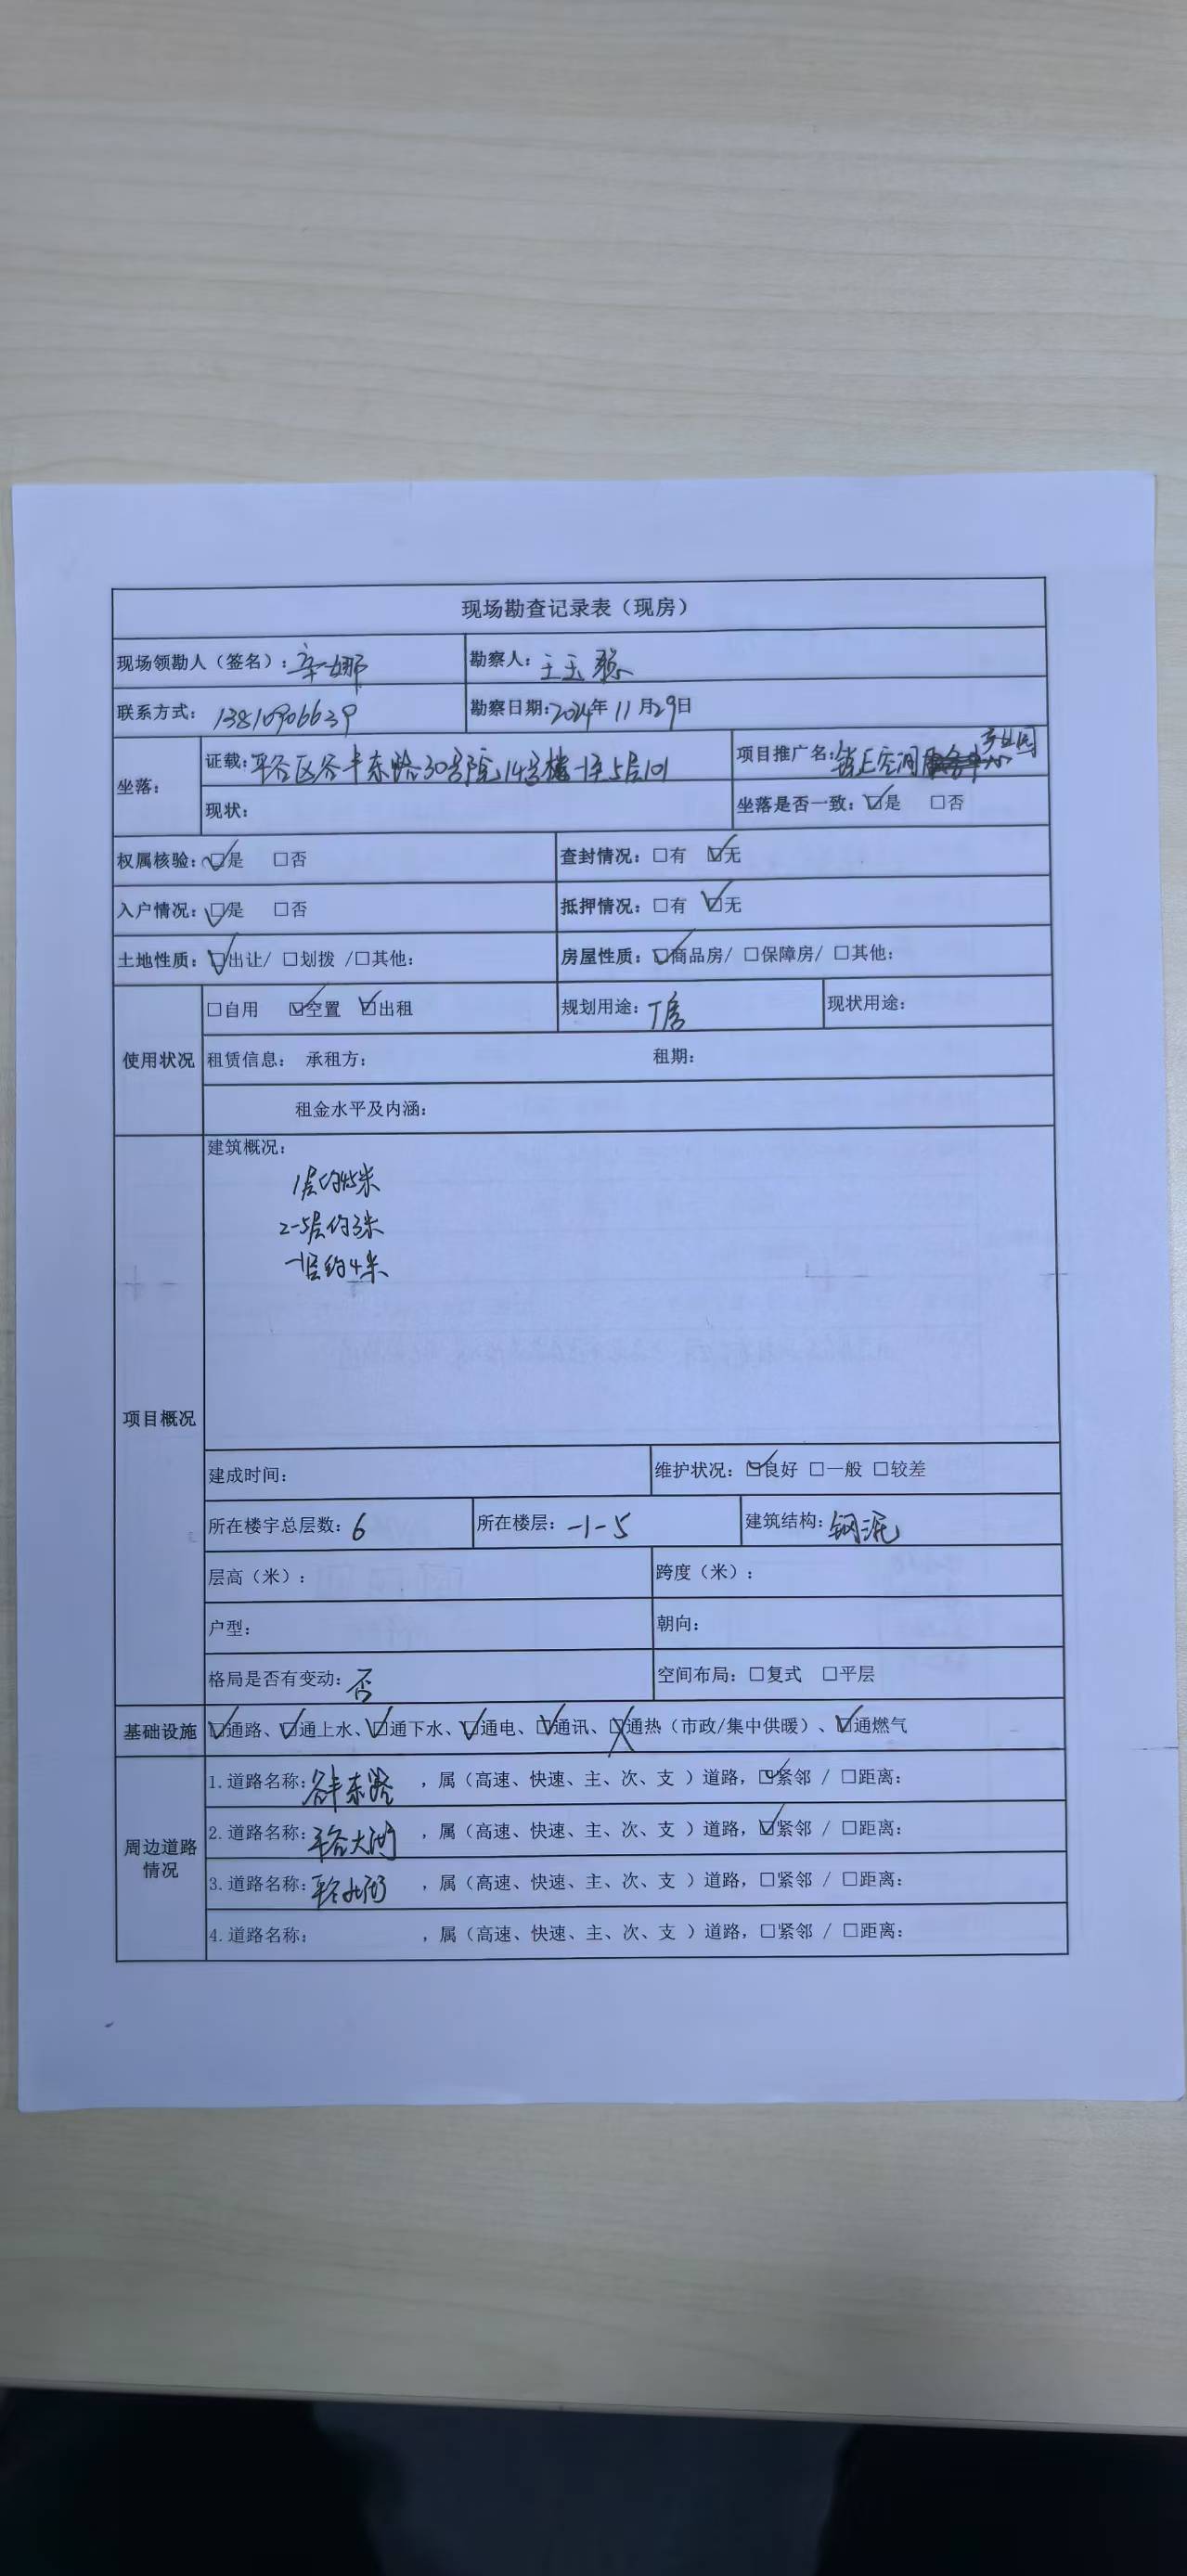 现场勘查记录表（现房）
现场领勘人（签名）：辛娜 勘察人：王玉
联系方式：13810906639 勘察日期：2024年11月29日
坐落： 证载：平谷区谷丰东路30号院14号楼-1至5层101 项目推广名：空间产业园
现状： 坐落是否一致：☑是 □否
权属核验：☑是 □否 查封情况：□有 ☑无
入户情况：☑是 □否 抵押情况：□有 ☑无
土地性质：☑出让/ □划拨 /□其他： 房屋性质：☑商品房/ □保障房/ □其他：
使用状况 □自用 ☑空置 ☑出租 规划用途：厂房 现状用途：
租赁信息： 承租方： 租期：
租金水平及内涵：
项目概况 建筑概况：
1层约4.5米
2-5层约3米
-1层约4米
建成时间： 维护状况：☑良好 □一般 □较差
所在楼宇总层数：6 所在楼层：-1-5 建筑结构：钢混
层高（米）： 跨度（米）：
户型： 朝向：
格局是否有变动：否 空间布局：□复式 □平层
基础设施 ☑通路、☑通上水、☑通下水、☑通电、☑通讯、☒通热（市政/集中供暖）、☑通燃气
周边道路情况 1.道路名称：谷丰东路 ，属（高速、快速、主、次、支 ）道路，☑紧邻 / □距离：
2.道路名称：平谷大街 ，属（高速、快速、主、次、支 ）道路，☑紧邻 / □距离：
3.道路名称：平谷北街 ，属（高速、快速、主、次、支 ）道路，□紧邻 / □距离：
4.道路名称： ，属（高速、快速、主、次、支 ）道路，□紧邻 / □距离：